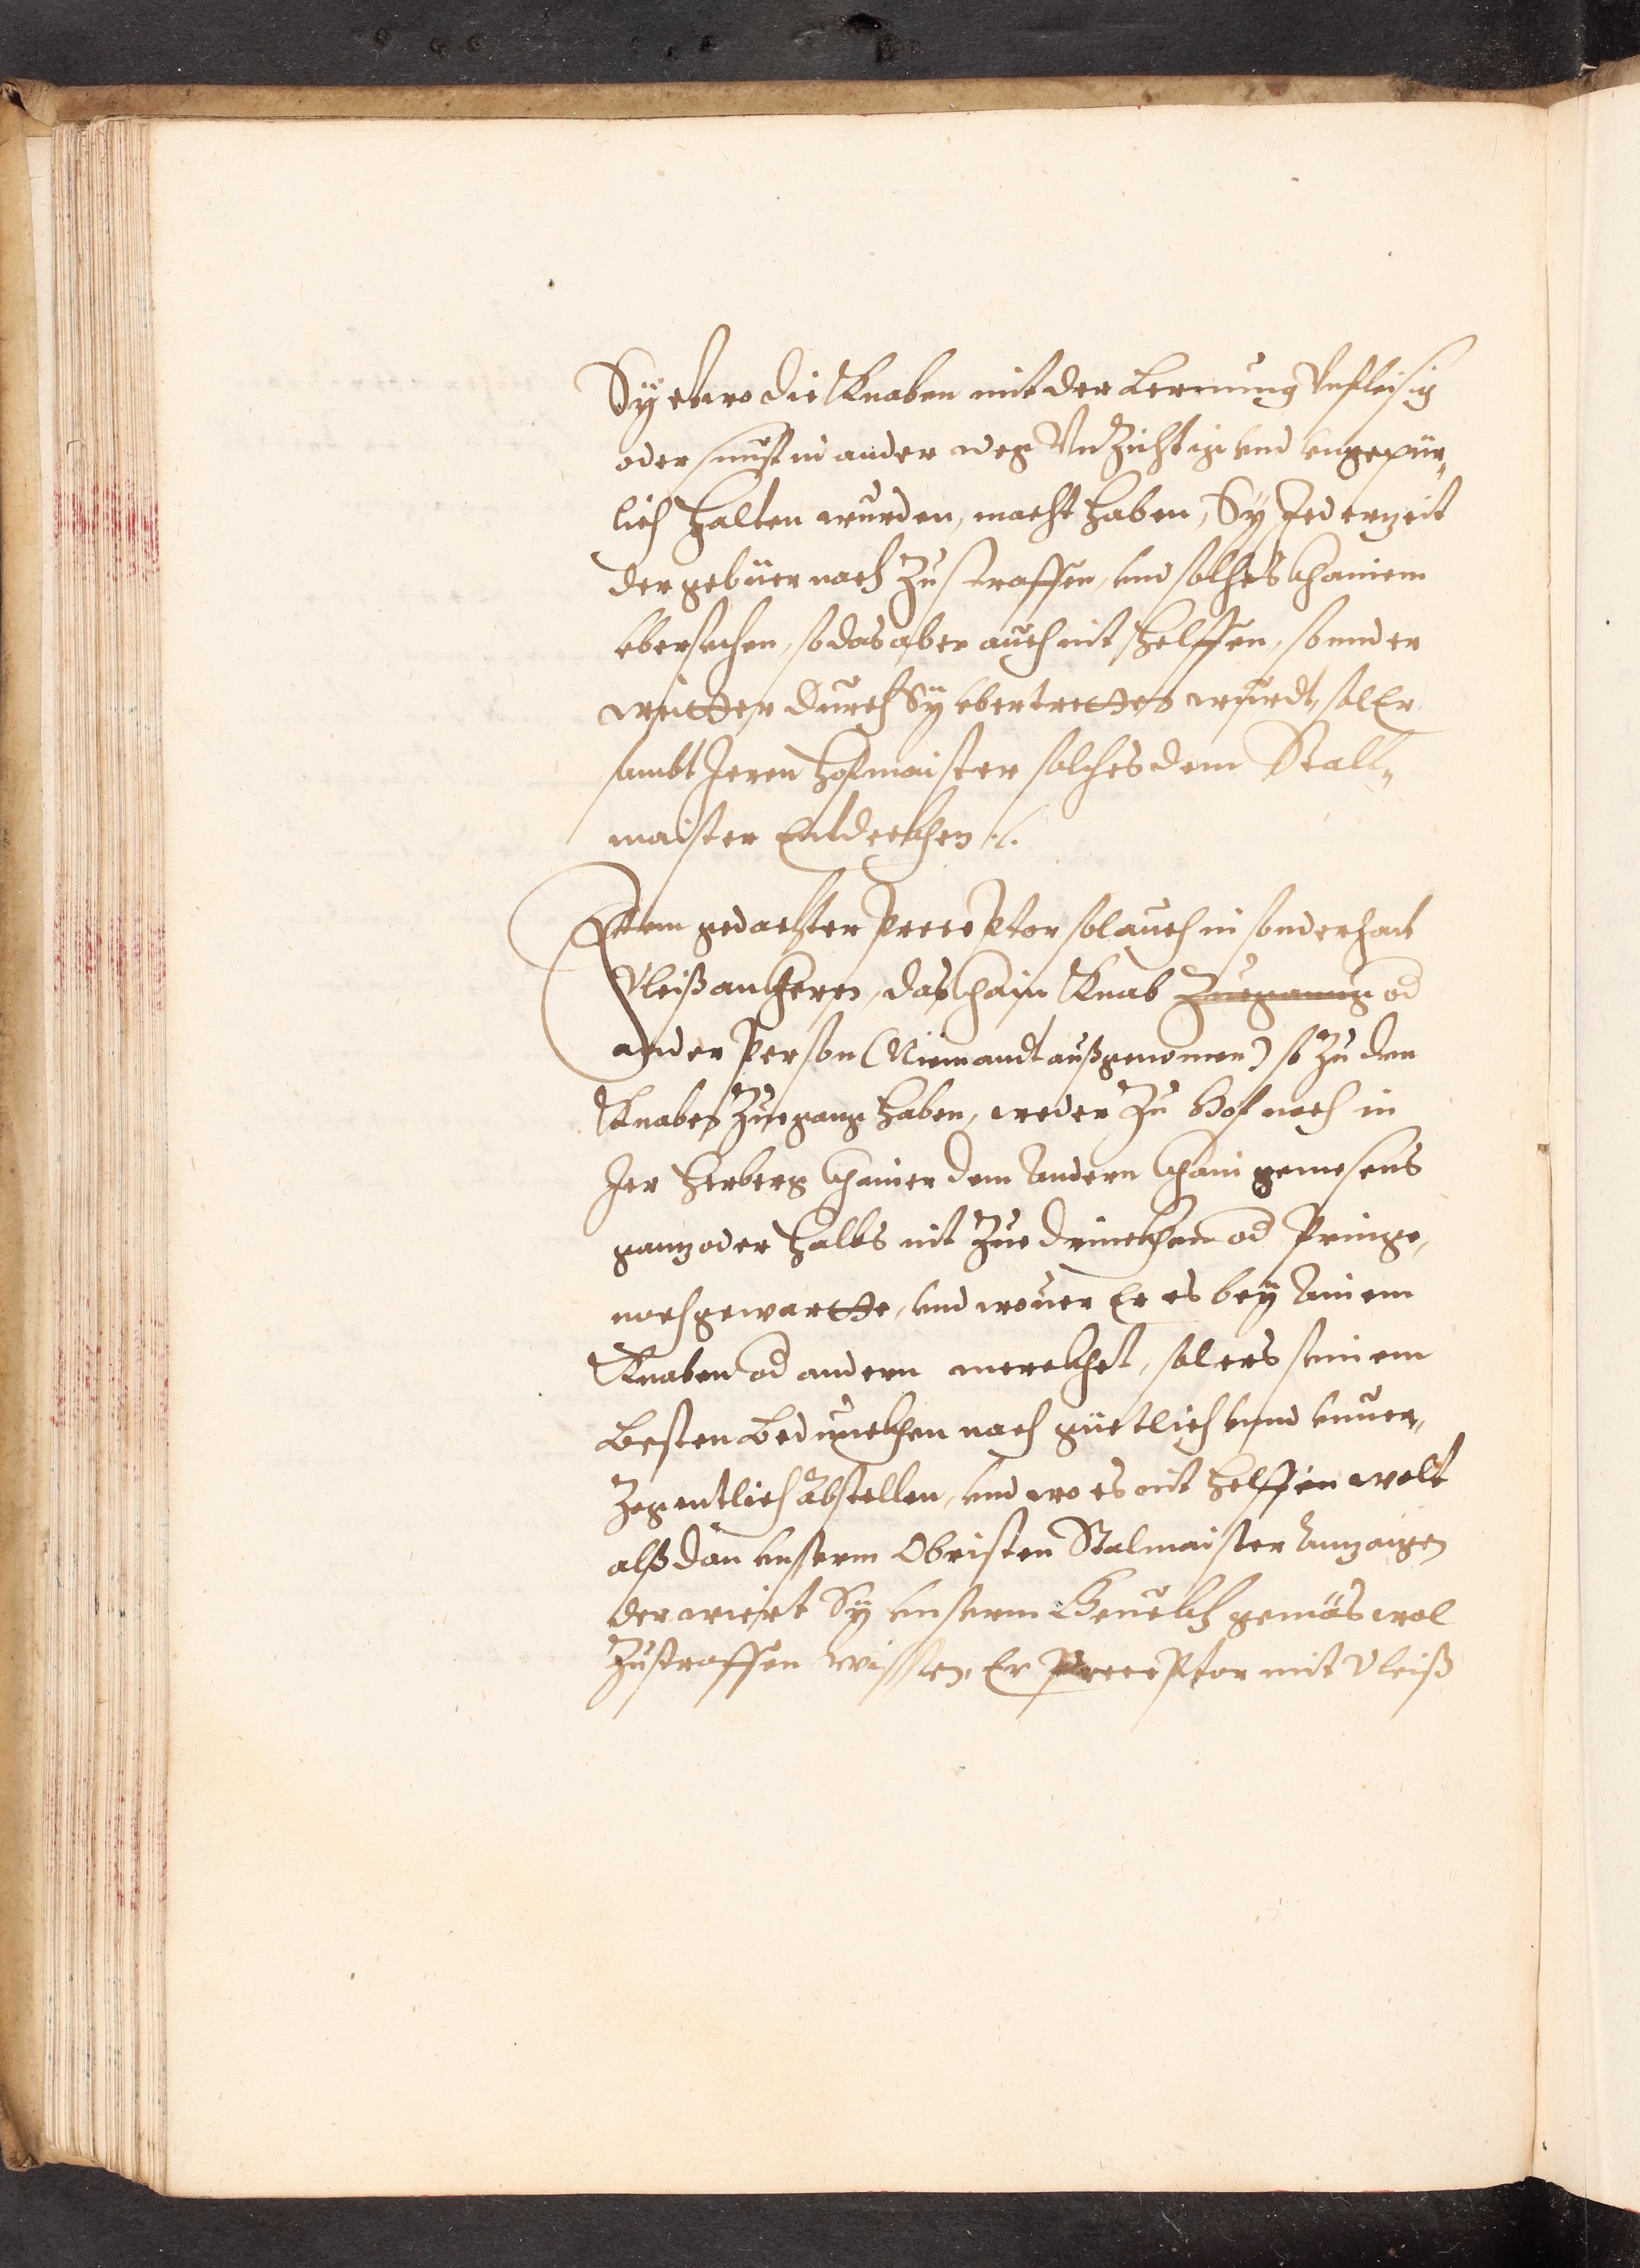 Sÿ etwo die Knaben mit der Lernung Vnfleisig
oder sunst in ander weg Vnzichtig vnd vngepür„
lich halten wurden, macht haben, Sÿ Jederzeit
der gebüer nach zu straffen, vnd solches khainem
vbersechen, so das aber auch nit helffen, sonnder
weitter durch Sÿ vbertretten wurdt, sol Er
sambt Jeren hofmaister solches dem Stall„
maister Entdeckhen ./.
Item gedachter Preceptor sol auch in sonderhait
Vleiß ankhern, das khain Knab Zueganng od
ander Person (Niemandt außgenomen) so zu den
Knaben Zuegang haben, weder zu Hof noch in
Jer herberg khainer dem Andern khain gemesens
ganz oder halbs nit Zue drinckhen od Pringe,
noch gewartte, vnd wouer Er es beÿ Ainem
Knaben od andern merckhet, sol ers seinem
Besten Bedunckhen nach güetlich vnnd vnuer„
zogentlich Abstellen, vnd wo es nit helffen wolt
alßdan vnserm Obristen Stalmaister Anzaigen
der wiert Sÿ vnserm Beuelch gemäs wol
Zustraffen wissen, Er Preceptor mit Vleiß